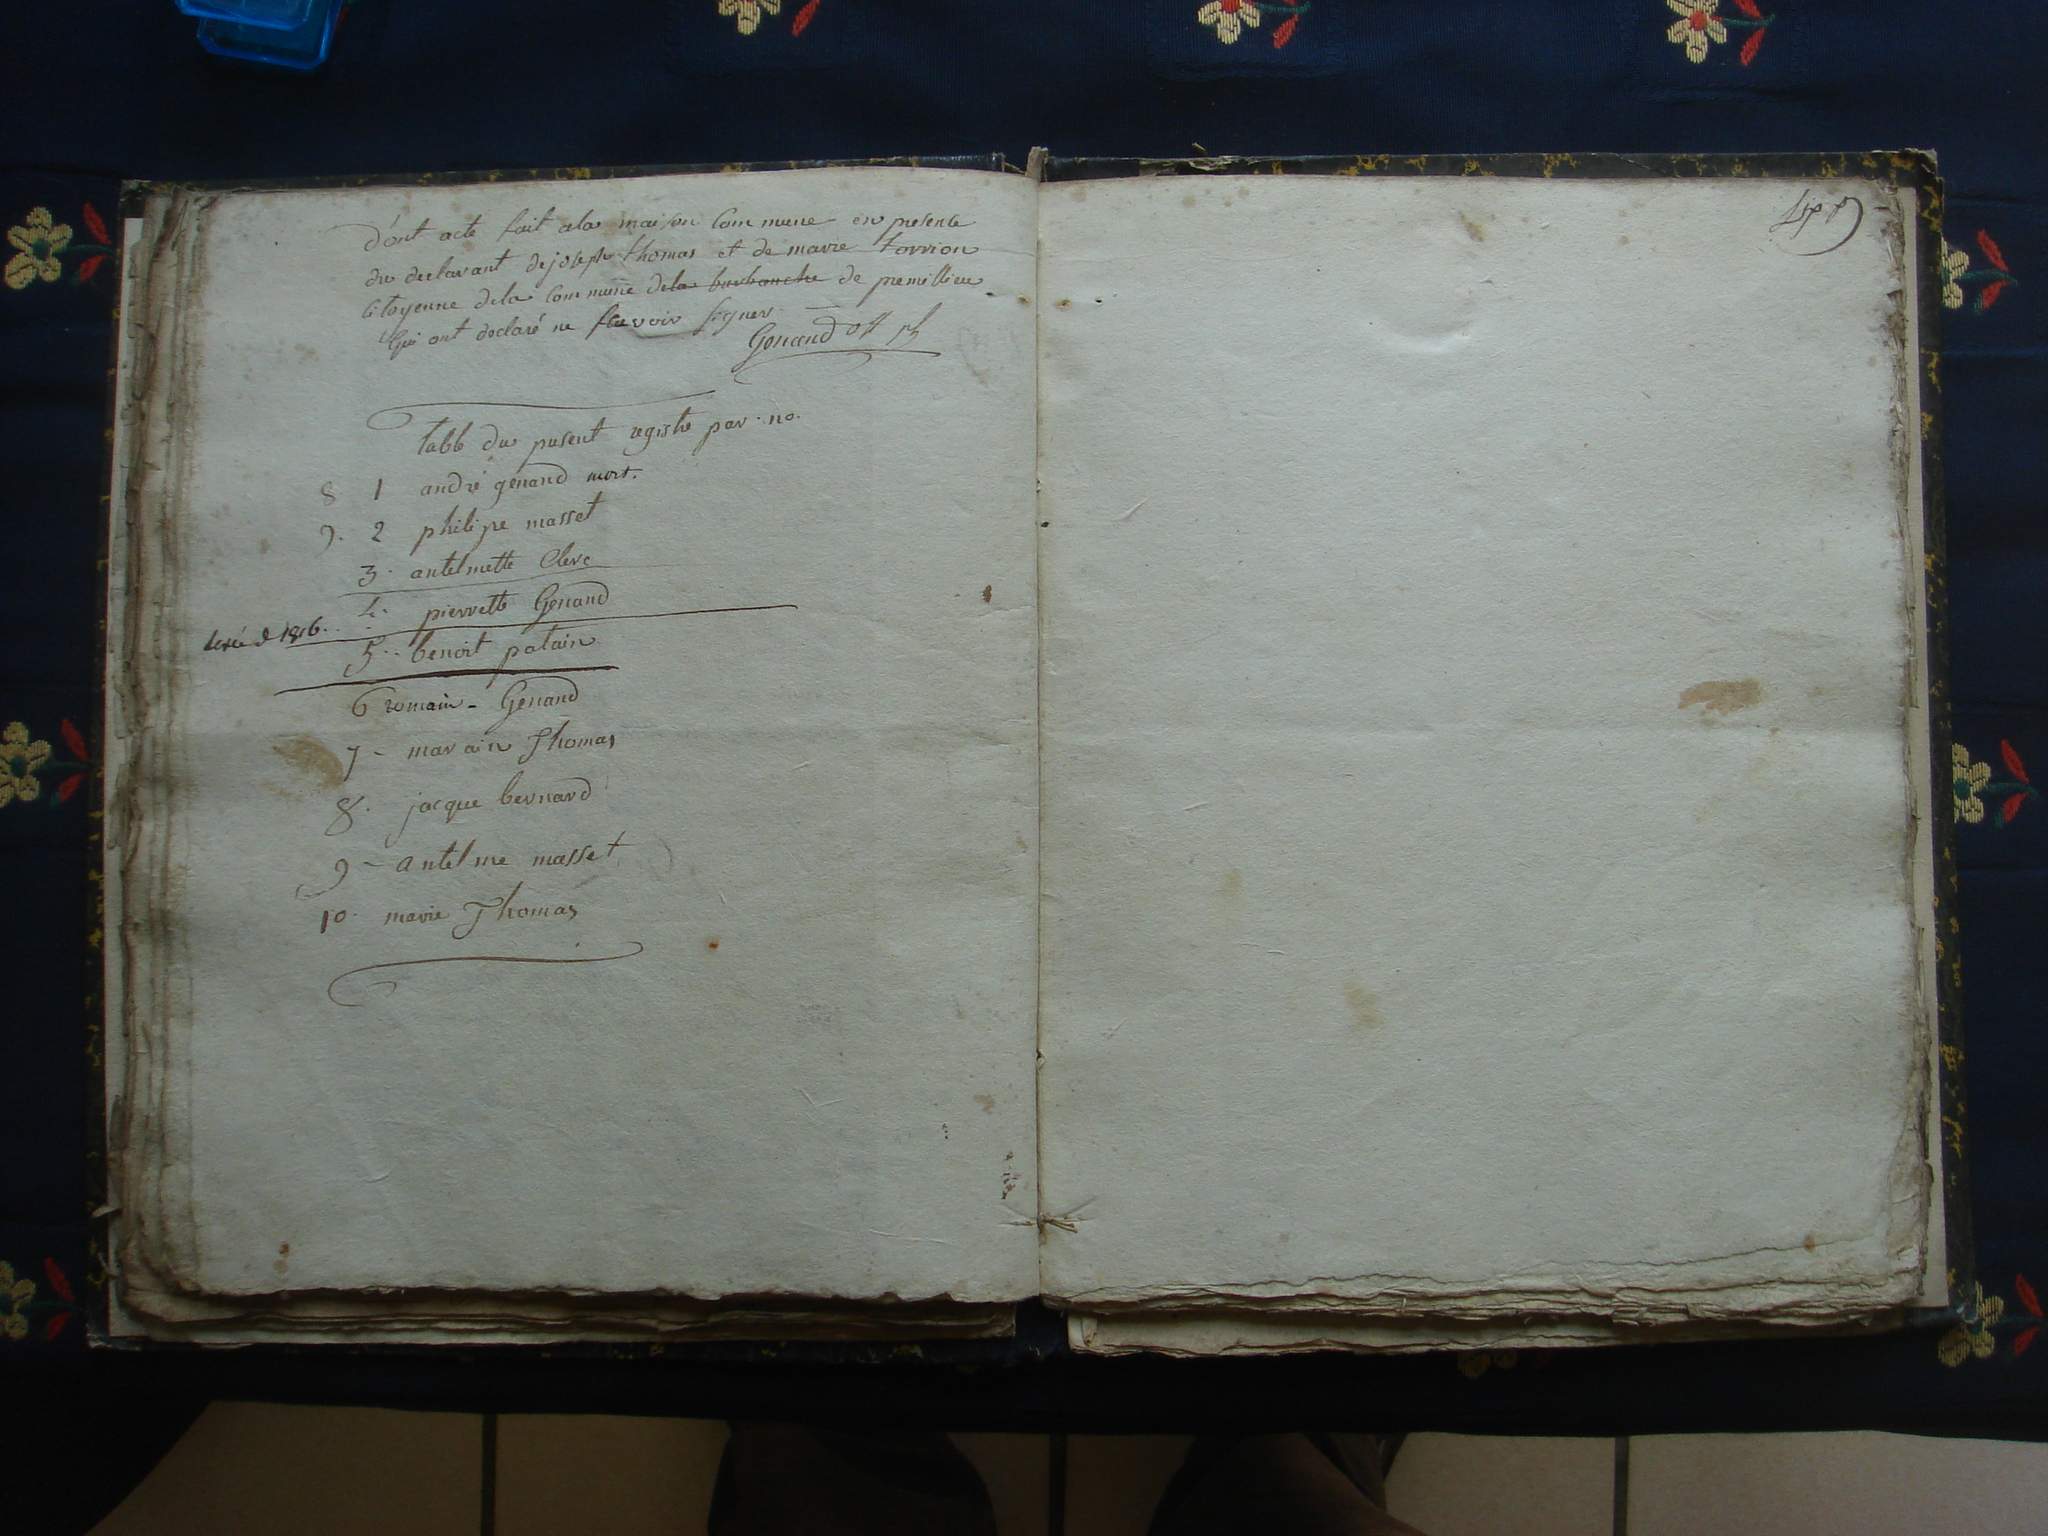 Dont acte fait ala maison Commune en presence
du declarant de joseph thomas et de marie torrion
Citoyenne dela Commune dela burbanche de premillieu
qui ont declaré ne scavoir signer
Genand off ph
table du present registre par no.
8 1 andré genand mort.
9. 2 philipe masset
3. antelmette Clerc
4. pierrette Genand
1816.
5.. benoit patain
6 romain - Genand
7 - marain Thomas
8. jacque bernard
9 - antelme masset
10. marie Thomas